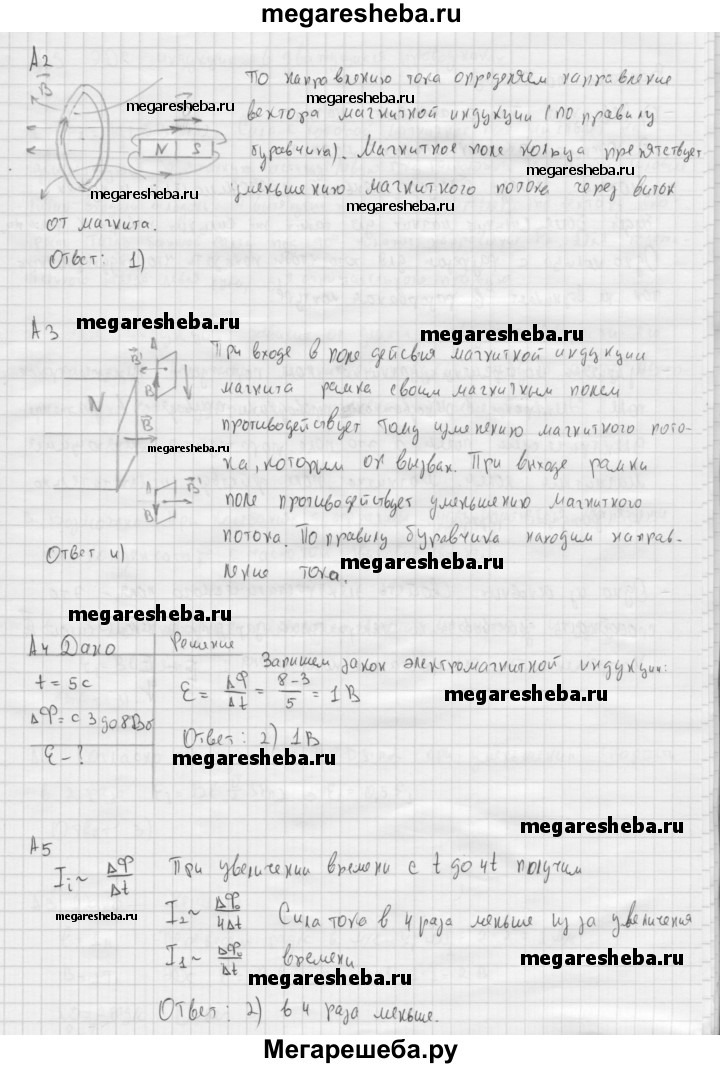 megaresheba.ru
А2
B
megaresheba.ru
N S
megaresheba.ru
По направлению тока определяем направление
megaresheba.ru
вектора магнитной индукции (по правилу
буравчика). Магнитное поле кольца препятствует
megaresheba.ru
уменьшению магнитного потока через виток
megaresheba.ru
от магнита.
Ответ: 1)
А3 megaresheba.ru
megaresheba.ru
N
A
B'
B
B
megaresheba.ru
A
B
B'
При входе в поле действия магнитной индукции
магнита рамка своим магнитным полем
противодействует тому изменению магнитного пото-
ка, которым он вызван. При выходе рамки
поле противодействует уменьшению магнитного
потока. По правилу буравчика находим направ-
megaresheba.ru
ление тока.
Ответ 4)
megaresheba.ru
А4 Дано
t = 5с
ΔФ = с 3 до 8 Вб
Ɛ - ?
Решение
Запишем закон электромагнитной индукции:
Ɛ = ΔФ/Δt = 8-3/5 = 1 В
megaresheba.ru
Ответ: 2) 1В
megaresheba.ru
megaresheba.ru
А5
I i ~ ΔФ/Δt При увеличении времени с t до 4t получим
megaresheba.ru
I₂ ~ ΔФ₀/4Δt Сила тока в 4 раза меньше из за увеличения
I₁ ~ ΔФ₀/Δt времени
megaresheba.ru
megaresheba.ru
Ответ: 2) в 4 раза меньше.
Мегарешеба.ру